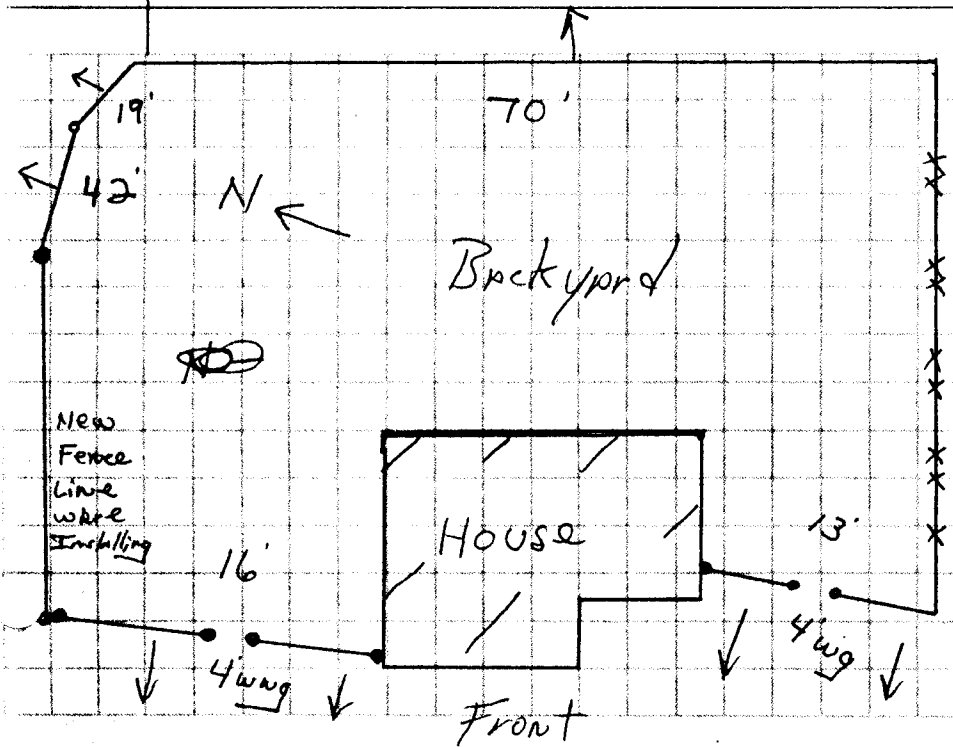 19'
70'
42'
N
Backyard
New
Fence
Line
were
Installing
House
16'
13'
4'wwg
4'wg
Front